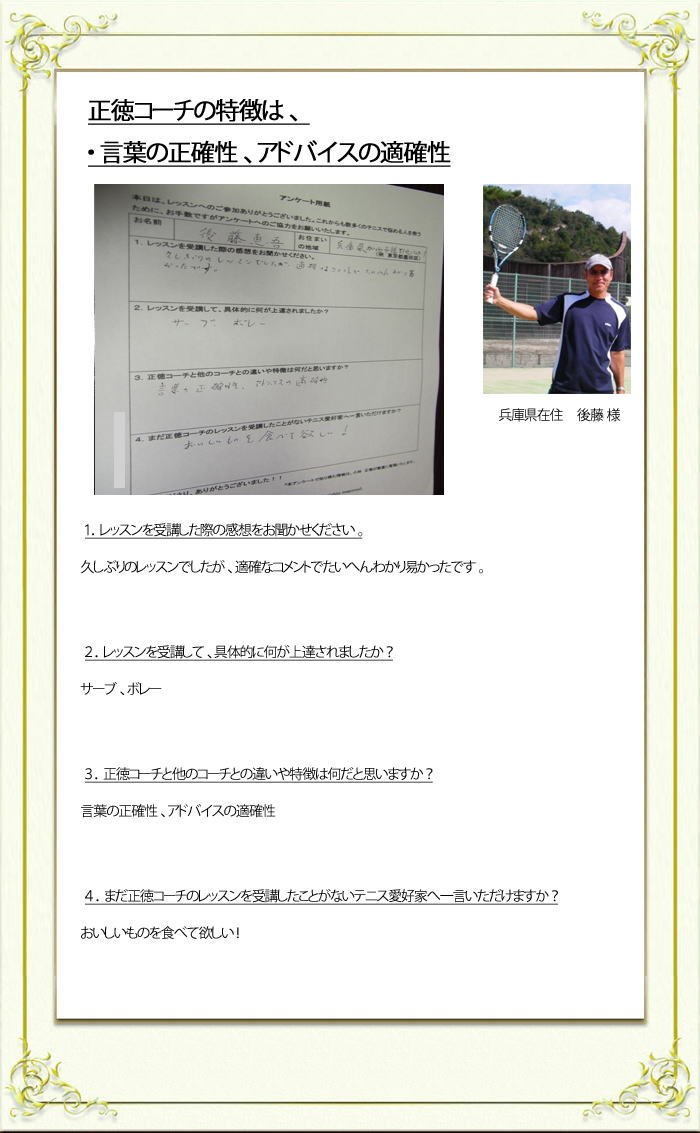 正徳コーチの特徴は、
・言葉の正確性、アドバイスの適確性
アンケート用紙
本日は、レッスンへのご参加ありがとうございました。これからも数多くのテニスで悩める人を救う
ために、お手数ですがアンケートへのご協力をお願いいたします。
お名前
後藤
お住まいの地域
兵庫県
(例 東京都墨田区)
1. レッスンを受講した際の感想をお聞かせください。
久しぶりのレッスンでしたが、適確なコメントでたいへんわかり易
かったです。
2. レッスンを受講して、具体的に何が上達されましたか?
サーブ、ボレー
3. 正徳コーチと他のコーチとの違いや特徴は何だと思いますか?
言葉の正確性、アドバイスの適確性
4. まだ正徳コーチのレッスンを受講したことがないテニス愛好家へ一言いただけますか?
おいしいものを食べて欲しい!
ありがとうございました!!
兵庫県在住 後藤 様
1. レッスンを受講した際の感想をお聞かせください。
久しぶりのレッスンでしたが、適確なコメントでたいへんわかり易かったです。
2. レッスンを受講して、具体的に何が上達されましたか?
サーブ、ボレー
3. 正徳コーチと他のコーチとの違いや特徴は何だと思いますか?
言葉の正確性、アドバイスの適確性
4. まだ正徳コーチのレッスンを受講したことがないテニス愛好家へ一言いただけますか?
おいしいものを食べて欲しい!